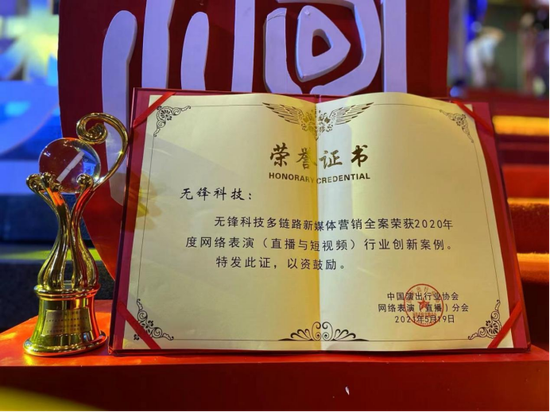 荣誉证书
HONORARY CREDENTIAL
无锋科技:
无锋科技多链路新媒体营销全案荣获2020年
度网络表演(直播与短视频)行业创新案例。
特发此证,以资鼓励。
中国演出行业协会
网络表演(直播)分会
2021年5月19日